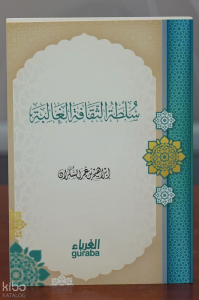 سُلطة الثقافة الغالبة
إبراهيم بن عمر السكران
الغرباء
guraba